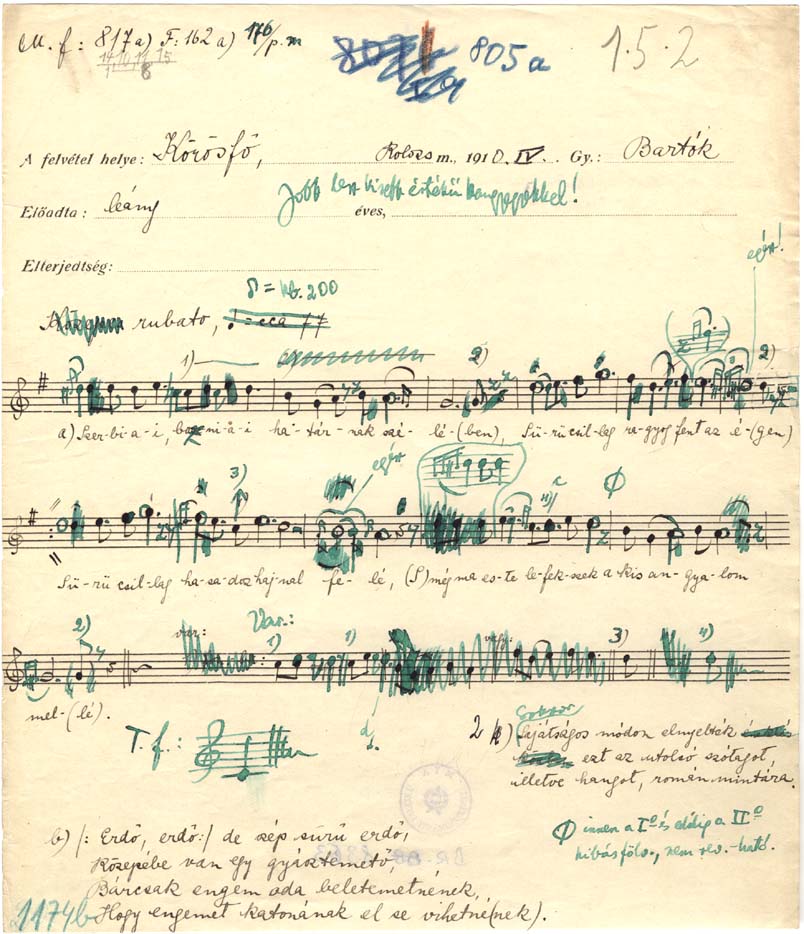 M. f: 817a) F: 162 a) 176/p.m
805a
1.5.2
8
A felvétel helye: Kőrösfő, Kolozs m., 1910. IV. Gy.: Bartók
Jobb lesz kisebb értékű hangjegyekkel!
Előadta: leány éves,
egész!
Elterjedtség:
♪ = kb. 200
rubato,
1) 2) 2)
a) Szer-bi-a-i, bosz-ni-á-i ha-tár-nak szé-lé-(ben), Sű-rű csil-lag ra-gyog fent az é-(gen)
3) 4) Φ
Sű-rű csil-lag ha-sadoz haj-nal fe-lé, (S) még ma es-te le-fek-szek a kis an-gya-lom
2) var: Var.: 1) 1) 3) 4)
mel-(lé).
T. f.:
2) sajátságos módon elnyelték
ezt az utolsó szótagot,
illetve hangot, román mintára.
Φ innen a I⁰ és eddig a II⁰
hibás fölv., nem rev.-ható.
b) |: Erdő, erdő :| de szép sűrű erdő,
Közepébe van egy gyásztemető,
Bárcsak engem oda beletemetnének,
Hogy engemet katonának el se vihetné(nek).
1174b